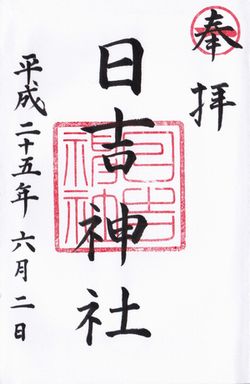 奉拝
日吉神社
平成二十五年六月二日